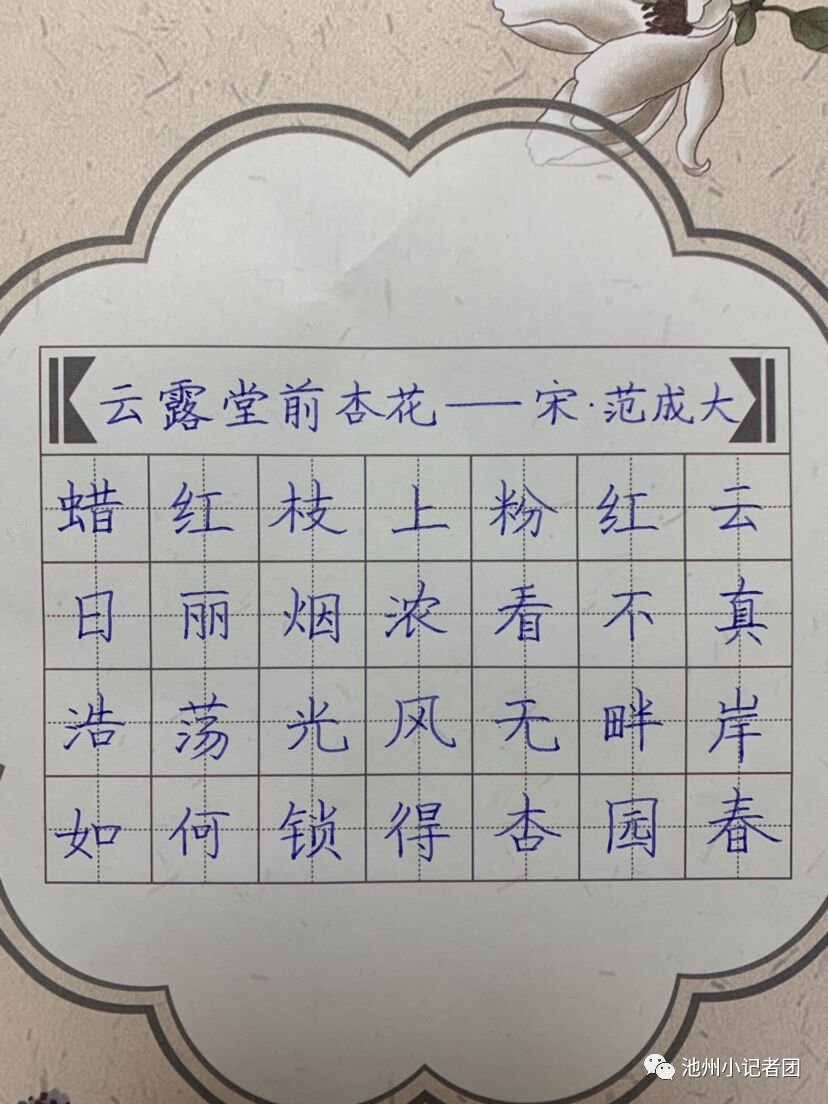 云露堂前杏花——宋·范成大
蜡红枝上粉红云
日丽烟浓看不真
浩荡光风无畔岸
如何锁得杏园春
池州小记者团